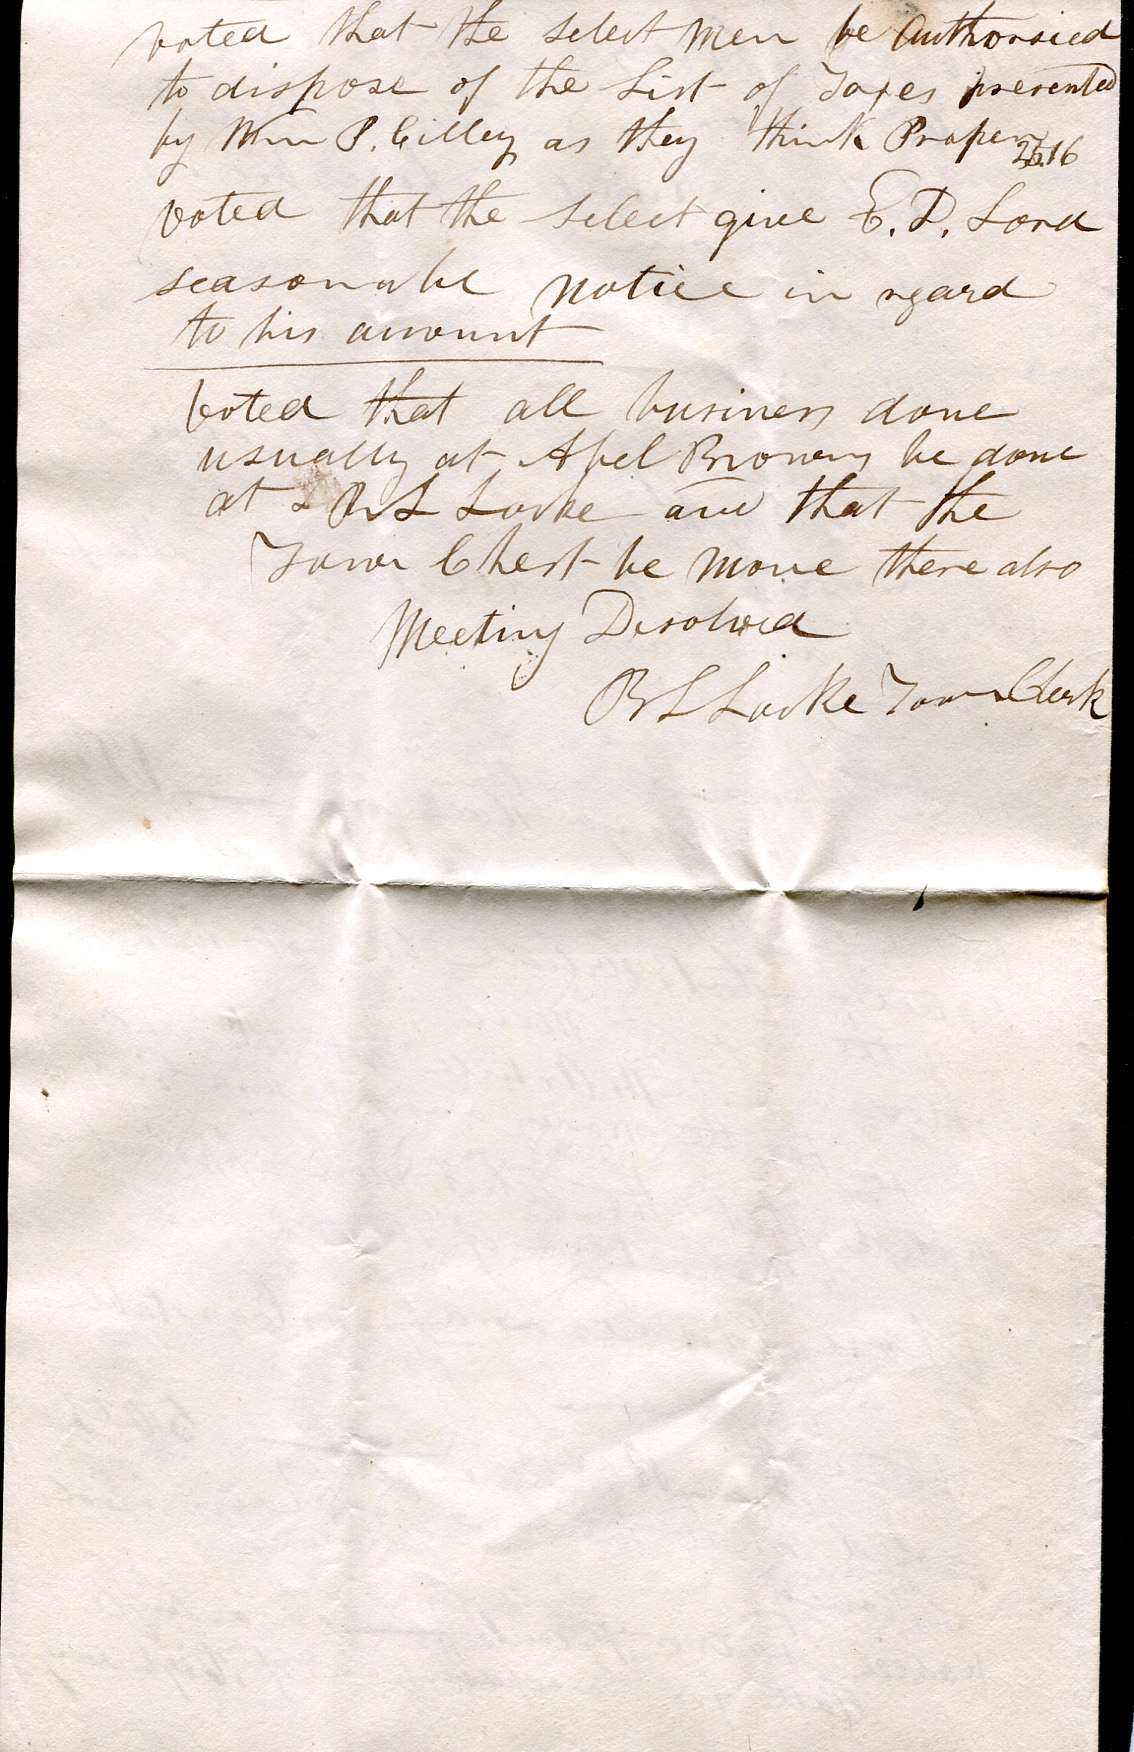 voted that the select men be Authorsied
to dispose of the List of Taxes presented
by Wm P. Cilley as they think Proper
26.16
voted that the select give E. D. Lord
seasonable notice in regard
to his amount
voted that all business done
usually at Abel Browns be done
at B L Locke and that the
Town Chest be move there also
Meeting Desolved
B L Locke Town Clerk